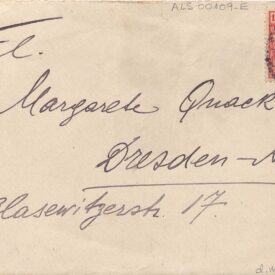 ALS-00109-E
Fl.
Margarete Quack
Dresden-
Blasewitzerstr. 17.